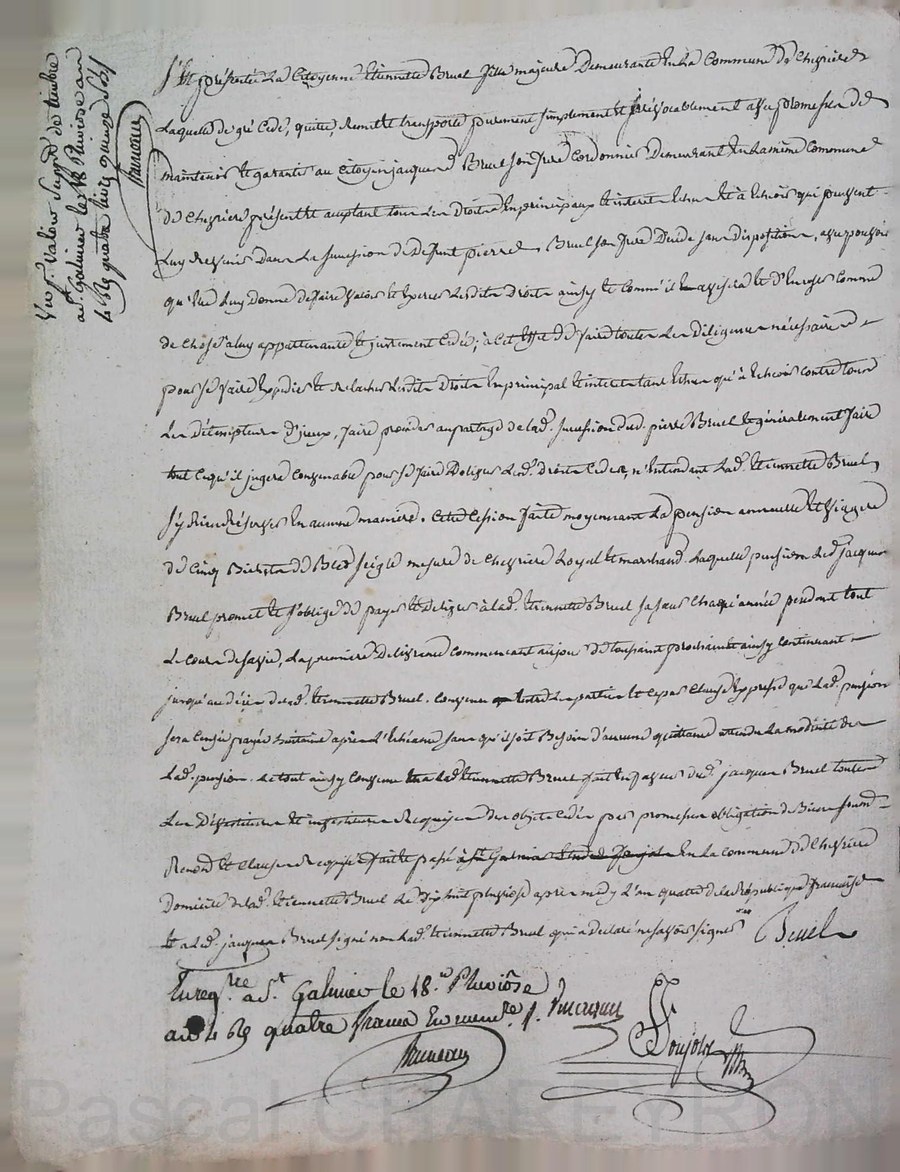 Vu p. Valoir suppt. de timbre
a St. Galmier le 18 Pluviose an
4 R quatre livres quinze s.
S'est présentée La Citoyenne Etiennette Bruel fille majeure Demeurante En La Commune De Chevrieres
Laquelle de gré Cede, quitte, Remet et transporte purement simplement et irrévocablement avec promesse de
maintenir et garantir au Citoyen jacques Bruel son frere Cordonnier Demeurant En La même Commune
de Chevriere présent et acceptant tous Les Droits En principaux et interet Echus et à Echoir qui peuvent
Luy Revenir Dans La succession de Deffunt pierre Bruel son frere Decedé sans disposition, avec pouvoir
qu'elle Luy Donne de faire valoir et Exercer Lesdits Droits ainsy et Comm'il avisera et d'En user Comme
de Chose a luy appartenante et justement Cédée; à Cet Effet de faire toutes Les Diligences nécessaires
pour se faire Expedier et Relacher Lesdits Droits En principal et interet tant Echus qu'à Echoir contre tous
Les Détempteurs d'iceux, faire proceder au partage de lad. succession dud. pierre Bruel et généralement faire
tout Ce qu'il jugera Convenable pour se faire Délivrer Lesd. droits Cedés, n'Entendant Lad. Etiennette Bruel
s'y Rien Réserver En aucune maniere. Cette Cession faite moyennant La pension annuelle et viagere
de Cinq Bichets de Bled seigle mesure de Chevriere Loyal et marchand. Laquelle pension Led. jacques
Bruel promet et s'oblige de payer et délivrer à lad. Etiennette Bruel sa sœur Chaque année pendant tout
Le Cours de sa vie, La premiere Délivrance commencant au jour de toussaint prochain et ainsy continuant
jusqu'au décès de lad. Etiennette Bruel. Convenu Entre Les parties Et Expresse que Lad. pension
sera Censée payée huitaine après L'Echéance sans qu'il soit Besoin d'aucune quittance attendu La modicité de
Lad. pension. Le tout ainsy Convenu Lad. Etiennette Bruel fait En faveur dud. jacques Bruel toutes
Les Dévestitures et investitures Requises des objets Cédés par promesses obligation de Biens soum.
Renon. et Clauses Requises fait et passé En La Commune De Chevriere
Domicile de lad. Etiennette Bruel Le Dix huit pluviose apres midy L'an quatre de la République française
Et a Led. jacques Bruel signé non Lad. Etiennette Bruel qui a declaré ne savoir signer
Bruel
Enreg.tré a St. Galmier le 18. Pluviôse
an 4 R quatre francs